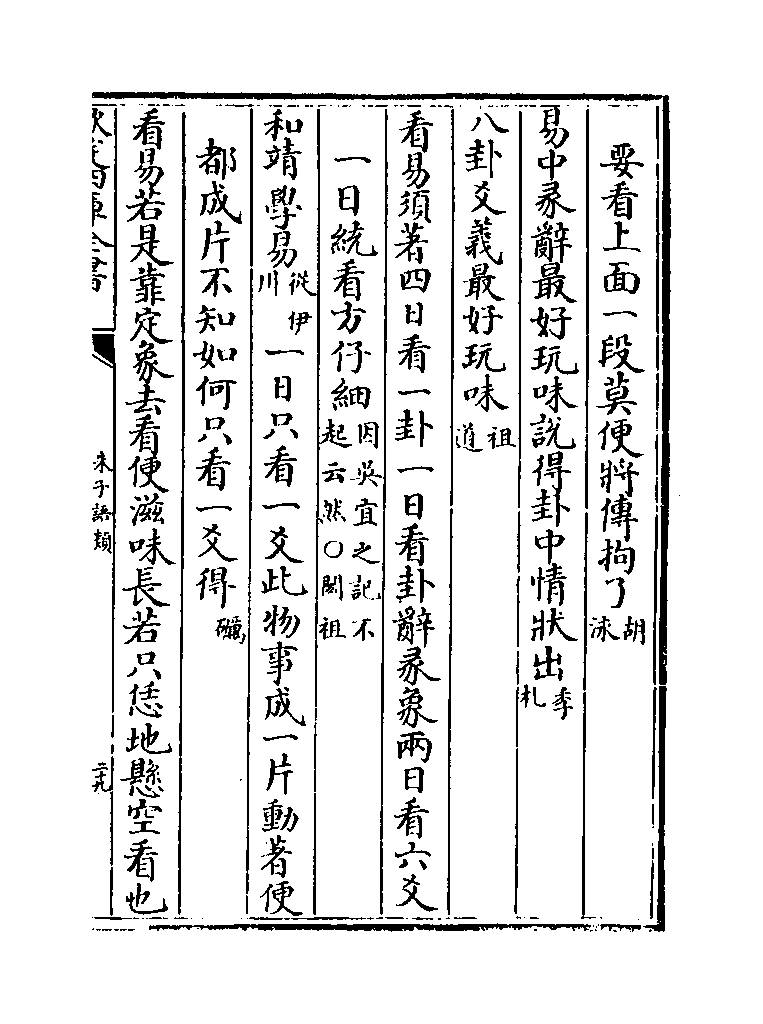 要看上面一段莫便將傳拘了胡泳
易中彖辭最好玩味說得卦中情狀出季札
八卦爻義最好玩味祖道
看易須著四日看一卦一日看卦辭彖象兩日看六爻
一日統看方仔細因吳宜之記不起云然〇閎祖
和靖學易從伊川一日只看一爻此物事成一片動著便
都成片不知如何只看一爻得礪
看易若是靠定象去看便滋味長若只恁地懸空看也
欽定四庫全書
朱子語類
二九